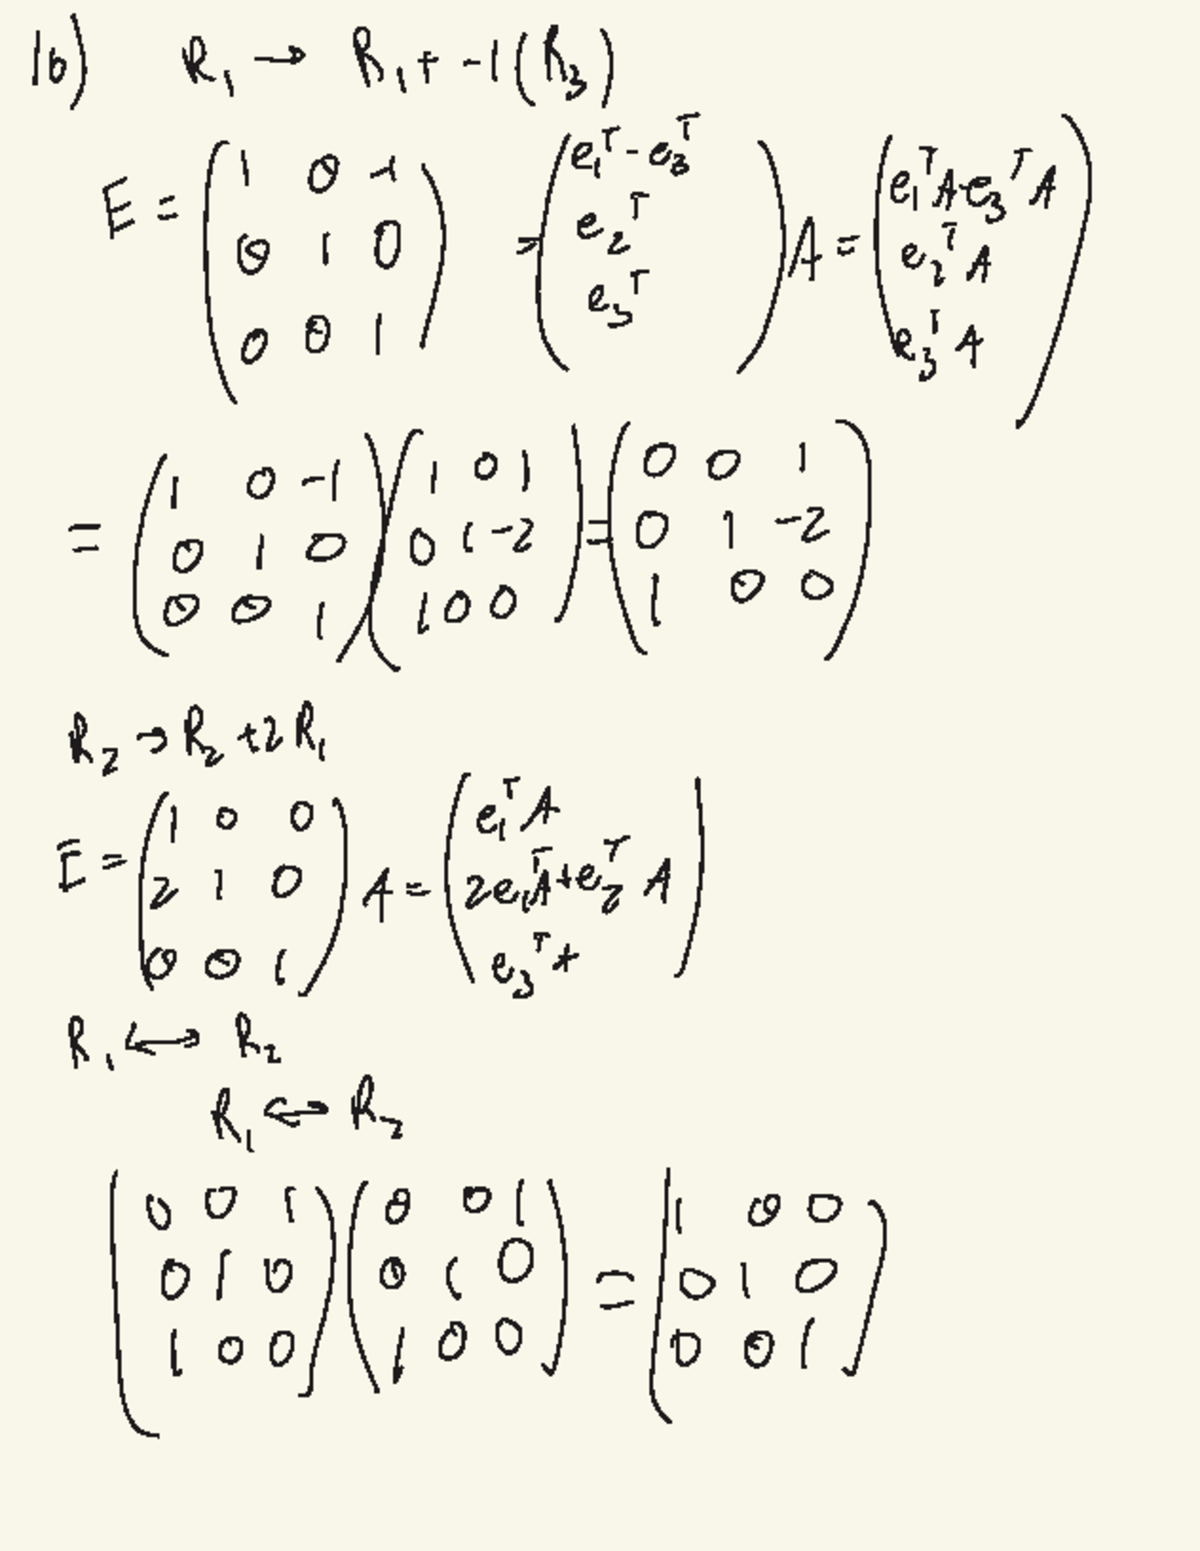 1b) R₁ → R₁ + -1(R₃)
E = (1 0 -1; 0 1 0; 0 0 1) = (e₁ᵀ - e₃ᵀ; e₂ᵀ; e₃ᵀ) A = (e₁ᵀA - e₃ᵀA; e₂ᵀA; e₃ᵀA)
= (1 0 -1; 0 1 0; 0 0 1)(1 0 1; 0 1 -2; 1 0 0) = (0 0 1; 0 1 -2; 1 0 0)
R₂ → R₂ + 2R₁
E = (1 0 0; 2 1 0; 0 0 1) A = (e₁ᵀA; 2e₁ᵀA + e₂ᵀA; e₃ᵀA)
R₁ ↔ R₂
R₁ ↔ R₂
(0 0 1; 0 1 0; 1 0 0)(0 0 1; 0 1 0; 1 0 0) = (1 0 0; 0 1 0; 0 0 1)